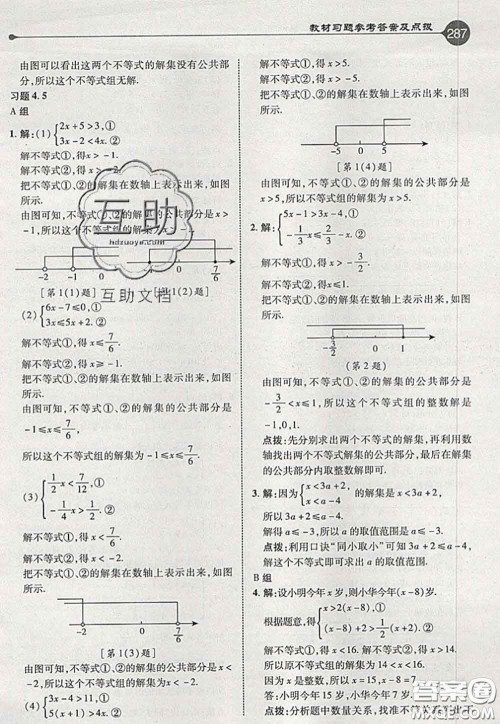 教材习题参考答案及点拨 287
由图可以看出这两个不等式的解集没有公共部
分,所以这个不等式组无解.
习题 4.5
A 组
1. 解:(1) {2x+5>3,①
3x-2<4x.②
解不等式①,得x>-1.
把不等式①、②的解集在数轴上表示出来,如图
所示.
由图可知,不等式①、②的解集的公共部分是x>
-1,所以这个不等式组的解集是x>-1.
-2 -1 0
-1 0 7/6
[第1(1)题] [第1(2)题]
(2) {6x-7≤0,①
3x≤5x+2.②
解不等式①,得x≤7/6.
解不等式②,得x≥-1.
把不等式①、②的解集在数轴上表示出来,如图
所示.
由图可知,不等式①、②的解集的公共部分是
-1≤x≤7/6,
所以这个不等式组的解集是-1≤x≤7/6.
(3) {1/2 x<7/12,①
-1/4 x>1/2.②
解不等式①,得x<7/6.
解不等式②,得x<-2.
把不等式①、②的解集在数轴上表示出来,如图
所示.
由图可知,不等式①、②的解集的公共部分是x<
-2,所以这个不等式组的解集是x<-2.
-2 0 7/6
[第1(3)题]
(4) {3x-4>11,①
解不等式①,得x>5.
解不等式②,得x>-5.
把不等式①、②的解集在数轴上表示出来,如图
所示.
-5 0 5
[第1(4)题]
由图可知,不等式①、②的解集的公共部分是
x>5,所以这个不等式组的解集是x>5.
2. 解: {5x-1>3x-4,①
-1/3 x≤2/3-x.②
解不等式①,得x>-3/2.
解不等式②,得x≤1.
把不等式①、②的解集在数轴上表示出来,如图
所示.
-3/2 0 1
(第2题)
由图可知,不等式①、②的解集的公共部分是
-3/2<x≤1,所以这个不等式组的整数解是
-1,0,1.
点拨:先分别求出两个不等式的解集,再利用数
轴找出两个不等式解集的公共部分,最后在解集
的公共部分内取整数解即可.
3. 解:因为 {x<3a+2,
x<a-4 的解集是x<3a+2,
所以3a+2≤a-4,所以a的取值范围是a≤-3.
点拨:利用口诀“同小取小”可知3a+2≤a-4,
解这个不等式即可得出a的取值范围.
B 组
4. 解:设小明今年x岁,则小华今年(x-8)岁.
根据题意,得 {x>2(x-8),①
(x-8)+2>1/2(x+2).②
解不等式①,得x<16.解不等式②,得x>14.
所以原不等式组的解集为14<x<16.
答:小明今年15岁,小华今年7岁.
互助
hdzuoye.com
互助文档
答案圈
MXQE.COM